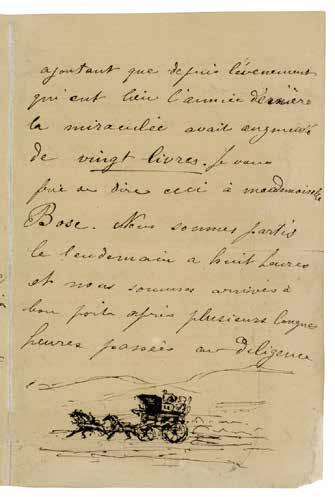 ajoutant que depuis l'évènement
qui eut lieu l'année dernière
la miraculée avait augmenté
de vingt livres. Je vous
prie de dire ceci à mademoiselle
Bosc. Nous sommes partis
le lendemain a huit heures
et nous sommes arrivés à
bon port après plusieurs longues
heures passées en diligence